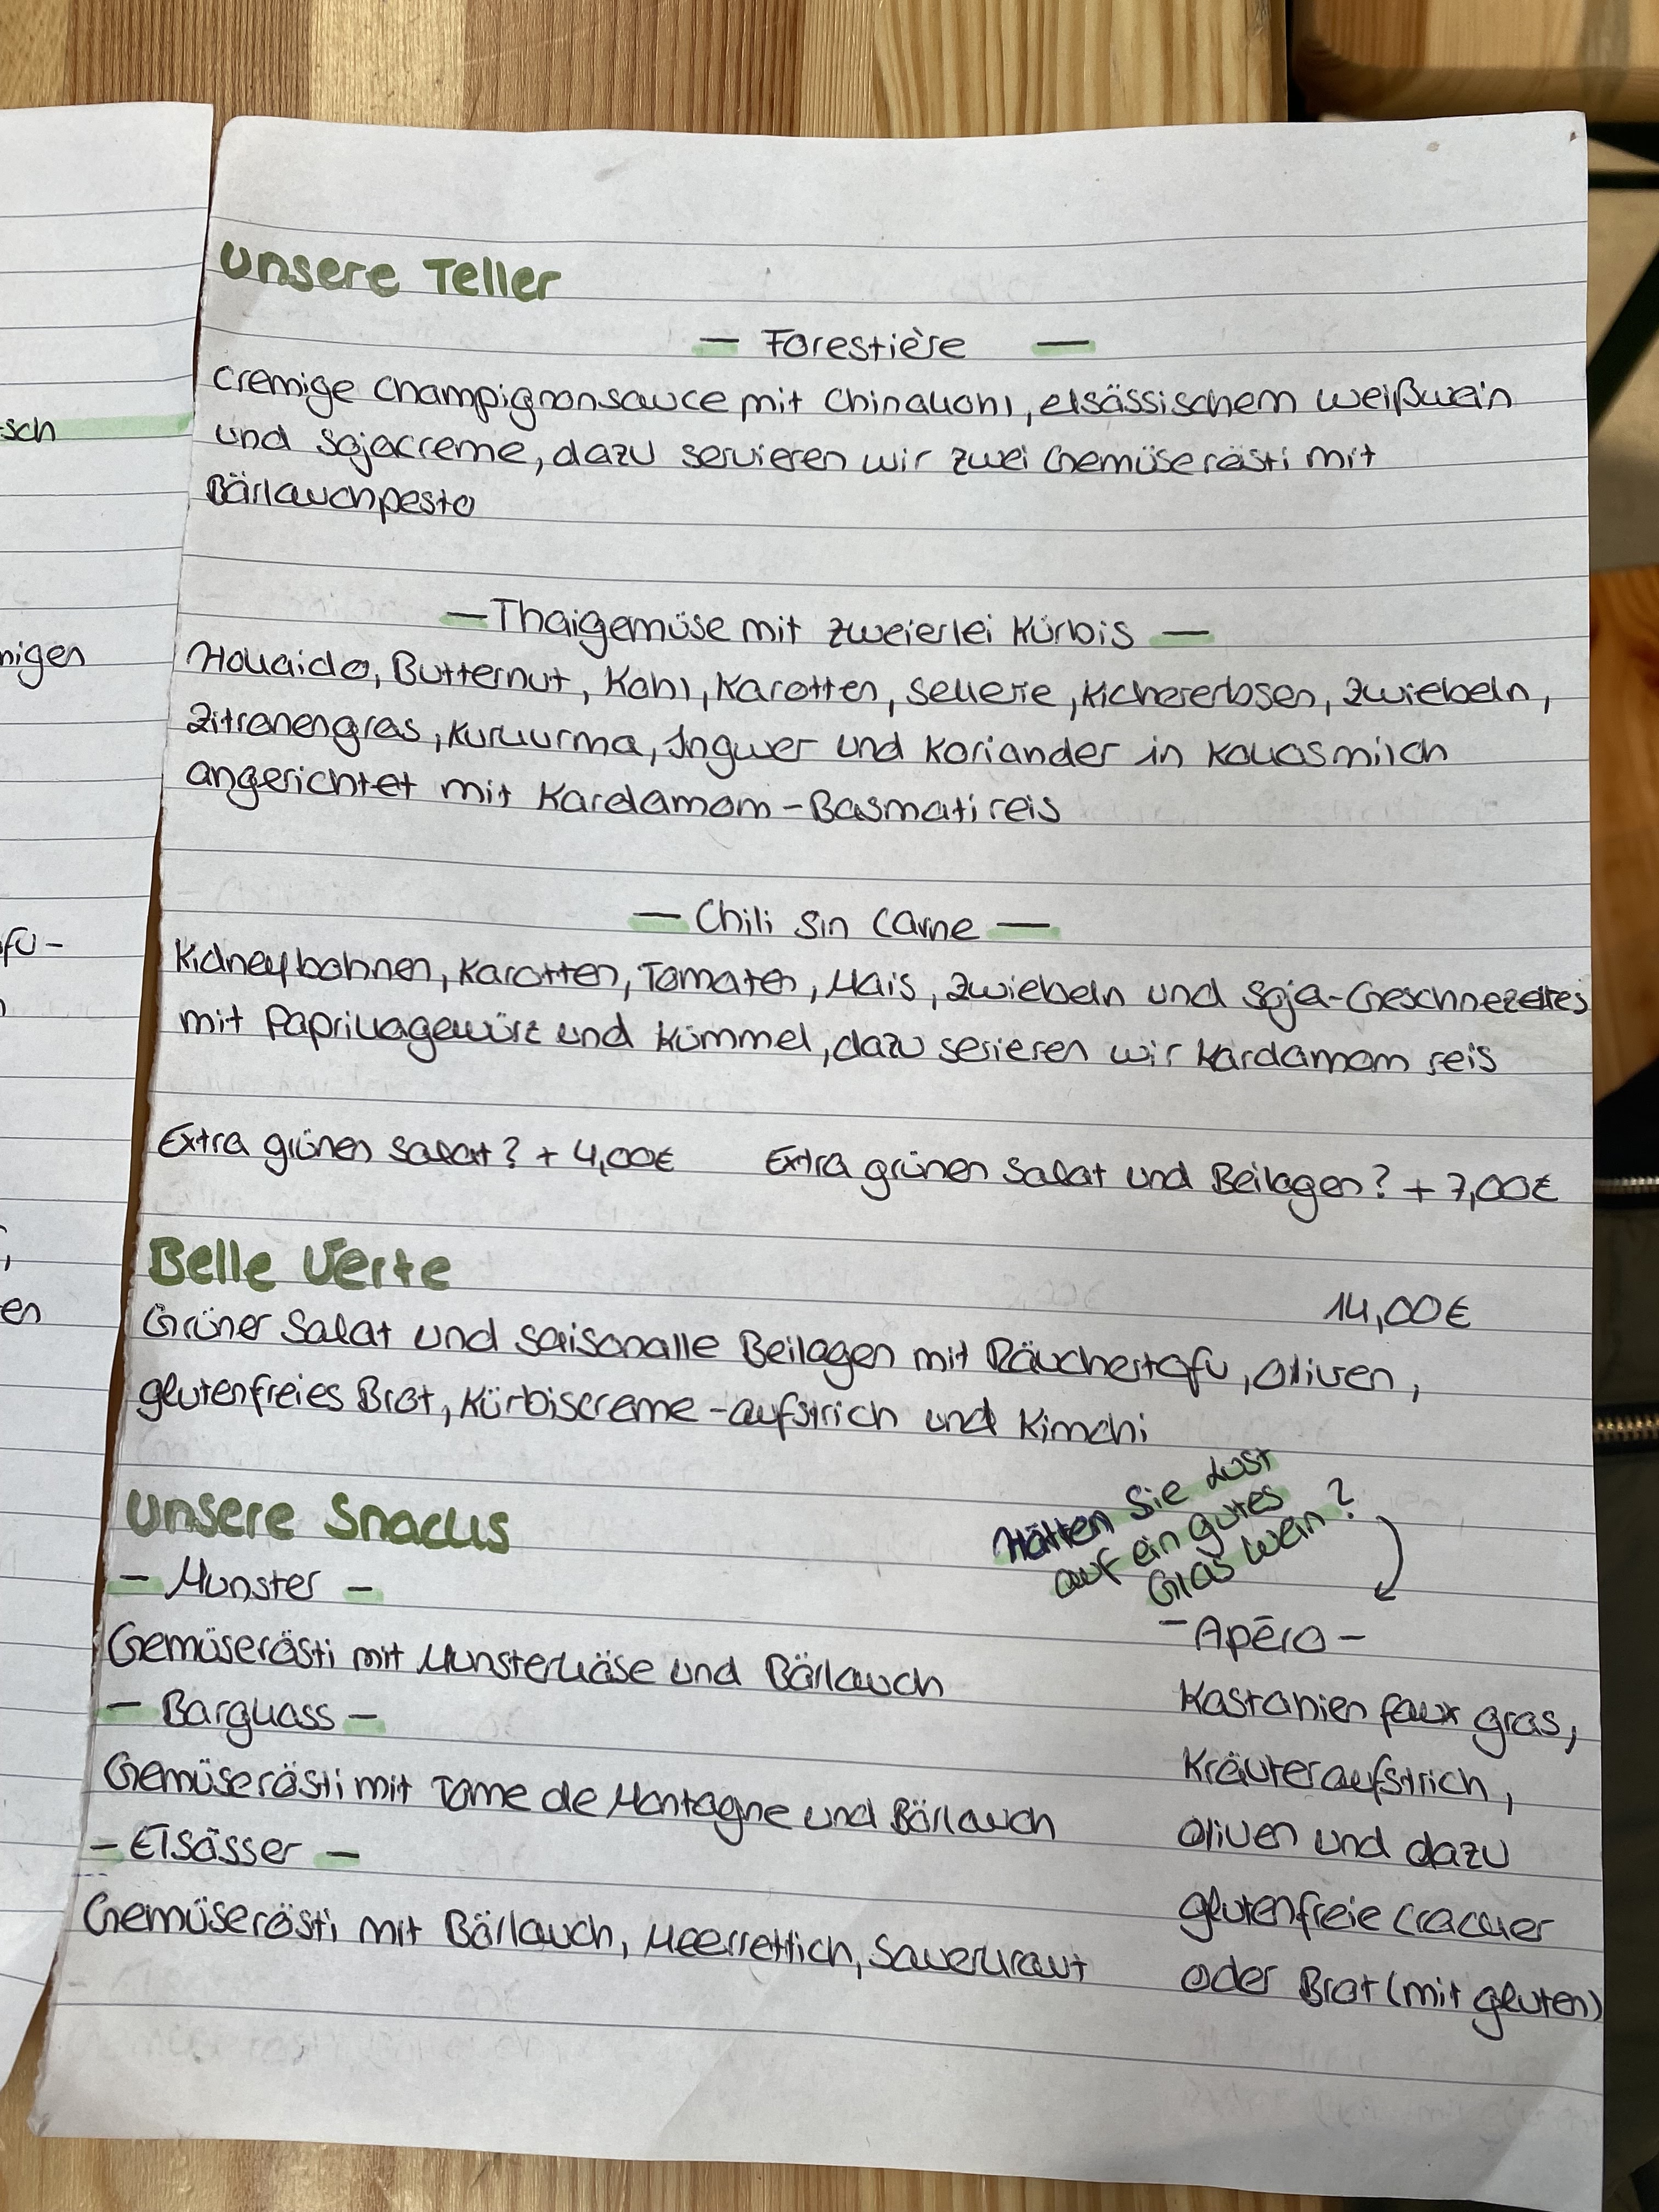 Unsere Teller
— Forestière —
Cremige Champignonsauce mit Chinakohl, elsässischem Weißwein
und Sojacreme, dazu servieren wir zwei Gemüserösti mit
Bärlauchpesto
— Thaigemüse mit zweierlei Kürbis —
Hokaido, Butternut, Kohl, Karotten, Sellerie, Kichererbsen, Zwiebeln,
Zitronengras, Kurkurma, Ingwer und Koriander in Kokosmilch
angerichtet mit Kardamom-Basmatireis
— Chili sin Carne —
Kidneybohnen, Karotten, Tomaten, Mais, Zwiebeln und Soja-Geschnezeltes
mit Paprikagewürz und Kümmel, dazu serieren wir Kardamom reis
Extra grünen Salat? + 4,00€ Extra grünen Salat und Beilagen? + 7,00€
Belle Verte
14,00€
Grüner Salat und saisonalle Beilagen mit Räuchertofu, Oliven,
glutenfreies Brot, Kürbiscreme-aufstrich und Kimchi
Unsere Snacks
- Munster -
Gemüserösti mit Munsterkäse und Bärlauch
- Barguass -
Gemüserösti mit Tome de Montagne und Bärlauch
- Elsässer -
Gemüserösti mit Bärlauch, Meerrettich, Sauerkraut
Hätten Sie Lust
auf ein gutes
Glas Wein?
- Apéro -
Kastanien faux gras,
Kräuteraufstrich,
Oliven und dazu
glutenfreie Cracker
oder Brot (mit gluten)
sch
nigen
fu-
en